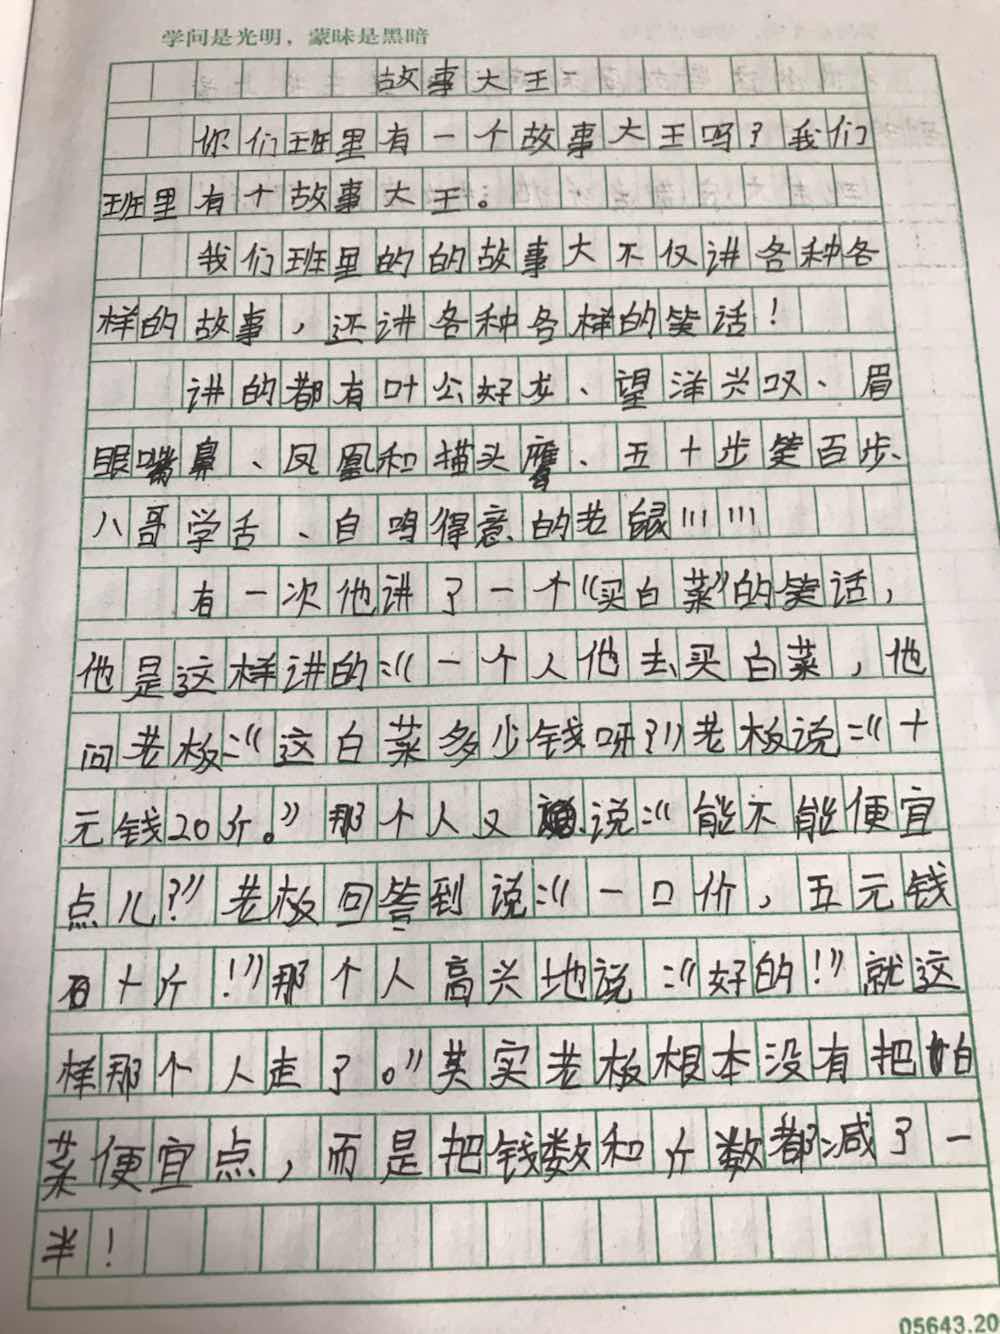 学问是光明，蒙昧是黑暗
故事大王
你们班里有一个故事大王吗？我们
班里有个故事大王。
我们班里的的故事大不仅讲各种各
样的故事，还讲各种各样的笑话！
讲的都有叶公好龙、望洋兴叹、眉
眼嘴鼻、凤凰和猫头鹰、五十步笑百步、
八哥学舌、自鸣得意的老鼠……
有一次他讲了一个“买白菜”的笑话，
他是这样讲的：“一个人他去买白菜，他
问老板：“这白菜多少钱呀？”老板说：“十
元钱20斤。”那个人又说：“能不能便宜
点儿？”老板回答到说：“一口价，五元钱
十斤！”那个人高兴地说：“好的！”就这
样那个人走了。”其实老板根本没有把白
菜便宜点，而是把钱数和斤数都减了一
半！
05643.20